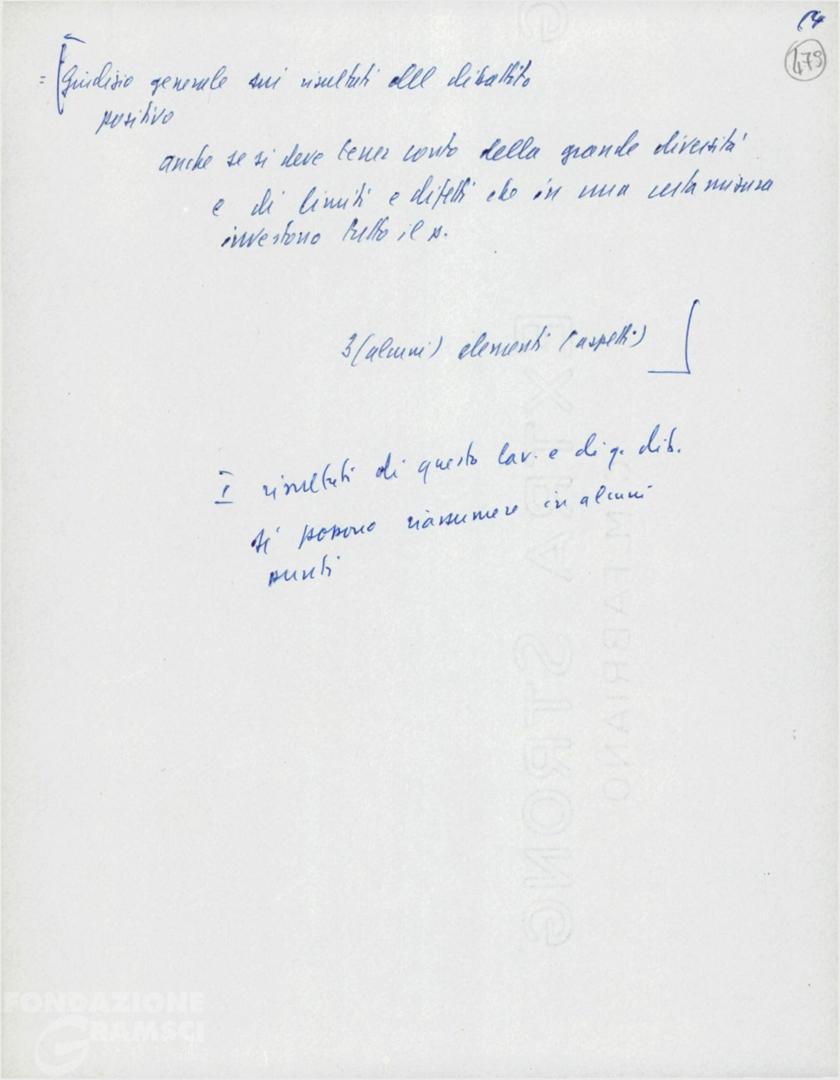 14
479
= [Giudizio generale sui risultati del dibattito
positivo
anche se si deve tener conto della grande diversità
e di limiti e difetti che in una certa misura
investono tutto il p.
3 (alcuni) elementi (aspetti) ]
I risultati di questo lav. e di q. dib.
si possono riassumere in alcuni
punti
EXTRA STRONG
FABRIANO
FONDAZIONE
GRAMSCI